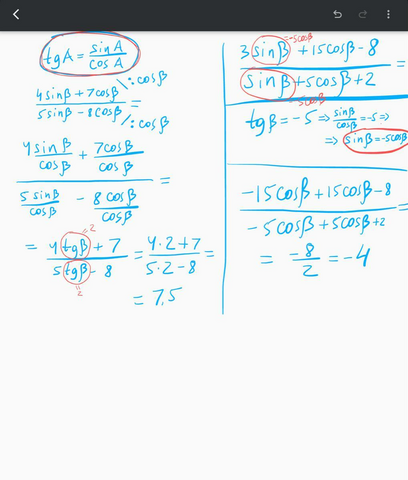 tgA = sinA / cosA
4sinβ + 7cosβ \ :cosβ
5sinβ - 8cosβ / :cosβ =
4sinβ / cosβ + 7cosβ / cosβ
5sinβ / cosβ - 8cosβ / cosβ =
= 4tgβ + 7 / 5tgβ - 8 = 4·2+7 / 5·2-8 =
=2
=2
= 7,5
=-5cosβ
3sinβ + 15cosβ - 8
sinβ + 5cosβ + 2 =
-5cosβ
tgβ = -5 ⇒ sinβ / cosβ = -5 ⇒
⇒ sinβ = -5cosβ
-15cosβ + 15cosβ - 8
-5cosβ + 5cosβ + 2 =
= -8 / 2 = -4